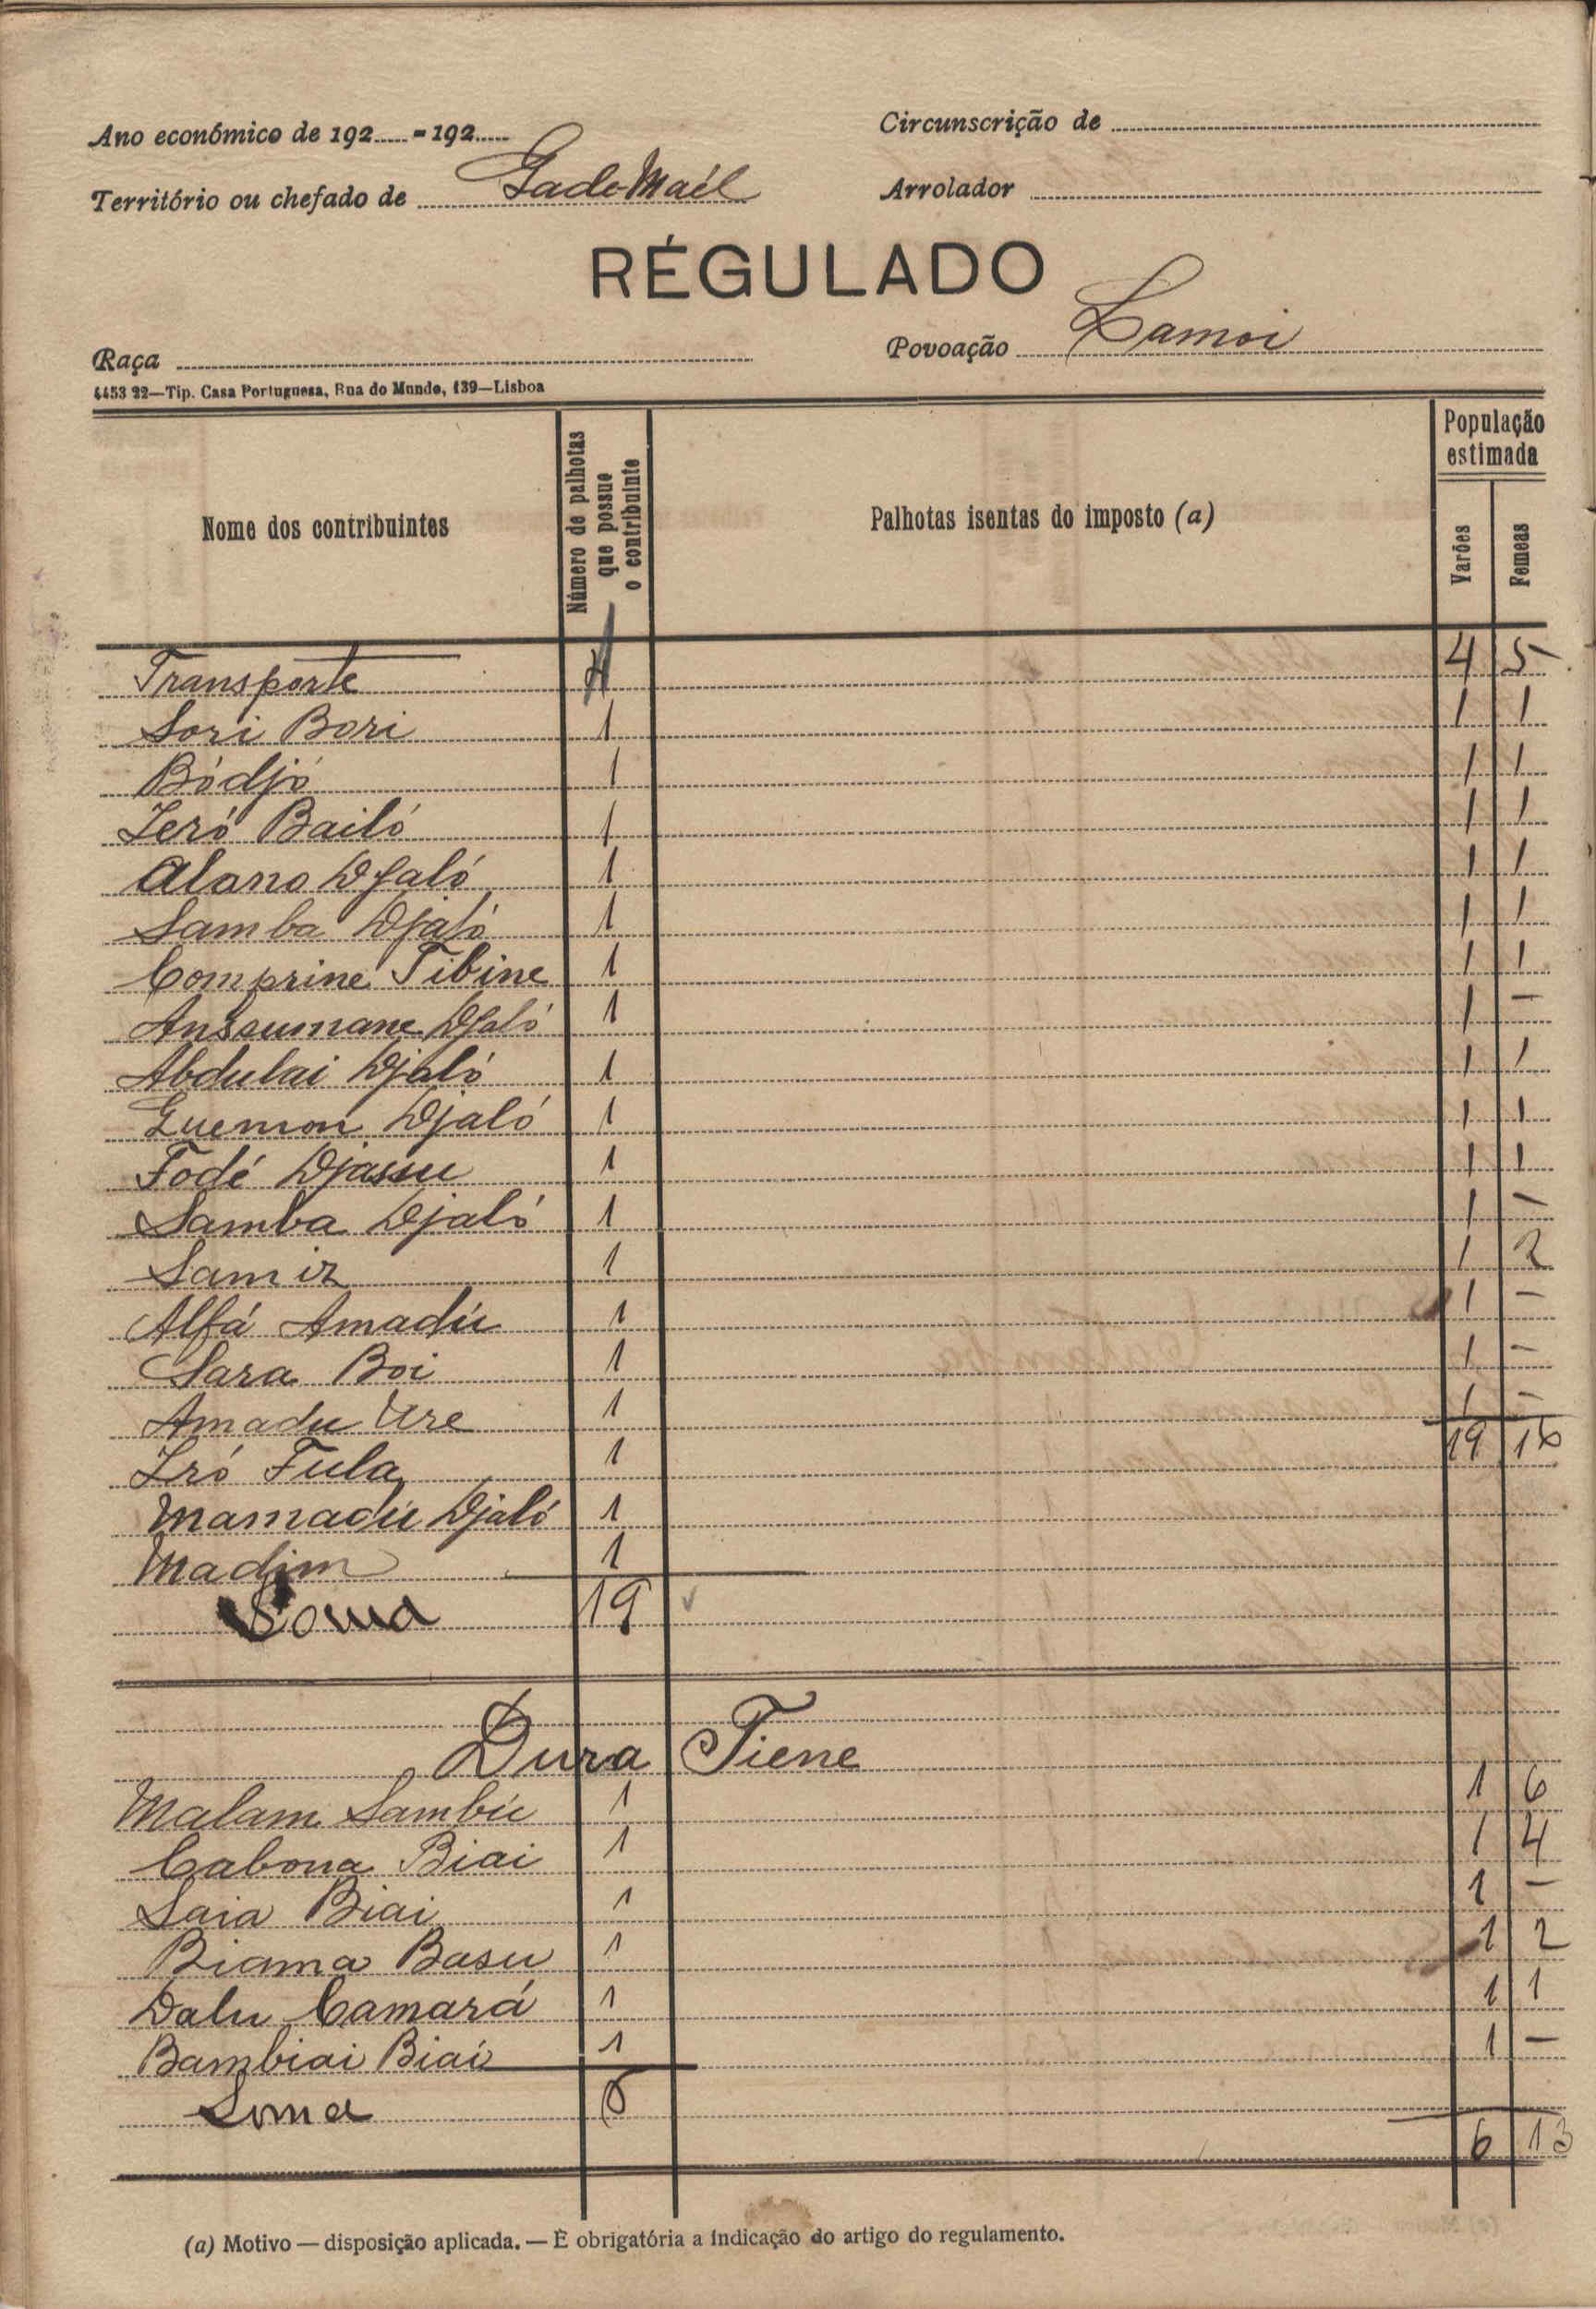 Ano económico de 192..... - 192..... Circunscrição de
Território ou chefado de Gade-Maél Arrolador
RÉGULADO
Raça Povoação Lamoi
4453 22—Tip. Casa Portuguesa, Rua do Mundo, 139—Lisboa
Nome dos contribuintes Número de palhotas que possue o contribuinte Palhotas isentas do imposto (a) População estimada Varões Femeas
Transporte 4 5
Sori Bori 1 1 1
Bódjó 1 1 1
Jeró Bailó 1 1 1
Alano Djaló 1 1 1
Samba Djaló 1 1 1
Comprine Tibine 1 1 1
Anssumane Djaló 1 1 —
Abdulai Djaló 1 1 1
Guemon Djaló 1 1 1
Fodé Djassu 1 1 1
Samba Djaló 1 1 —
Samir 1 1 2
Alfá Amadú 1 1 —
Sara Boi 1 1 —
Amadu Ure 1 1 —
Iró Fula 1 19 16
Mamadú Djaló 1
Madim 1
Soma 19
Dura Tiene
Malam Sambú 1 1 6
Cabona Biai 1 1 4
Saia Biai 1 1 —
Biama Basu 1 1 2
Dalu Camará 1 1 1
Bambiai Biai 1 1 —
Soma 6
6 13
(a) Motivo — disposição aplicada. — É obrigatória a indicação do artigo do regulamento.